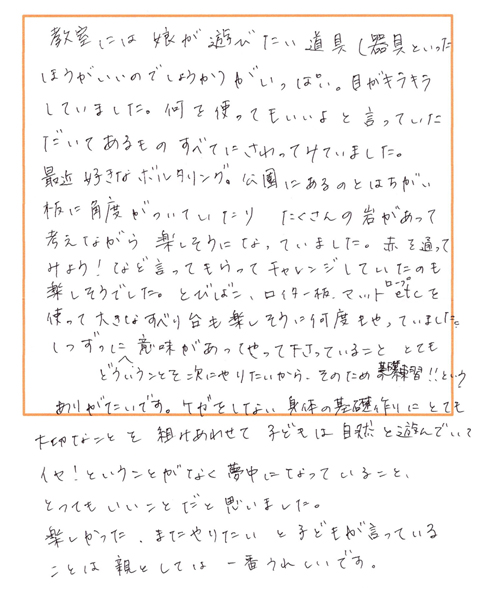 教室には 娘が 遊びたい 道具(器具といった
ほうがいいのでしょうか)がいっぱい。目がキラキラ
していました。何を使ってもいいよと言っていた
だいてあるもの すべてに さわってみていました。
最近 好きな ボルタリング。公園にあるのとはちがい
板に角度がついていたり たくさんの岩があって
考えながら 楽しそうになっていました。赤を通って
みよう!など言ってもらって チャレンジしていたのも
楽しそうでした。とびばこ、ロイター板、マット ロープ etcを
使って 大きなすべり台も楽しそうに何度もやっていました。
1つずつに 意味があって やって下さっていること とても
どういうことを次にやりたいから、そのため 基礎 練習!!という
ありがたいです。ケガをしない 身体の基礎作りに とても
大切なことを 組みあわせて 子どもは 自然と遊んでいて
イヤ!ということがなく 夢中になっていること、
とってもいいことだと思いました。
楽しかった、またやりたい と子どもが言っている
ことは 親としては 一番うれしいです。